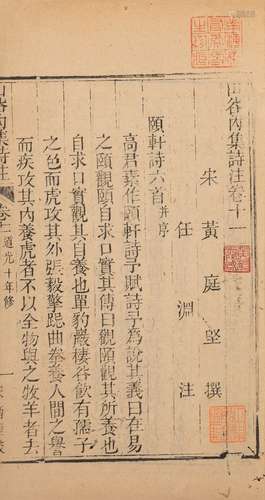 山谷內集詩注卷十一
宋 黃庭堅 撰
任淵 注
頤軒詩六首 并序
高君素作頤軒請予賦詩予為說其義曰在易
之頤觀頤自求口實其傳曰觀頤觀其所養也
自求口實觀其自養也單豹巖棲谷飲有孺子
之色而虎攻其外張毅擎跽曲拳養人間之譽
而疾攻其內養虎者不以全物與之牧羊者去
山谷內集詩注
卷十一
道光十年修
一